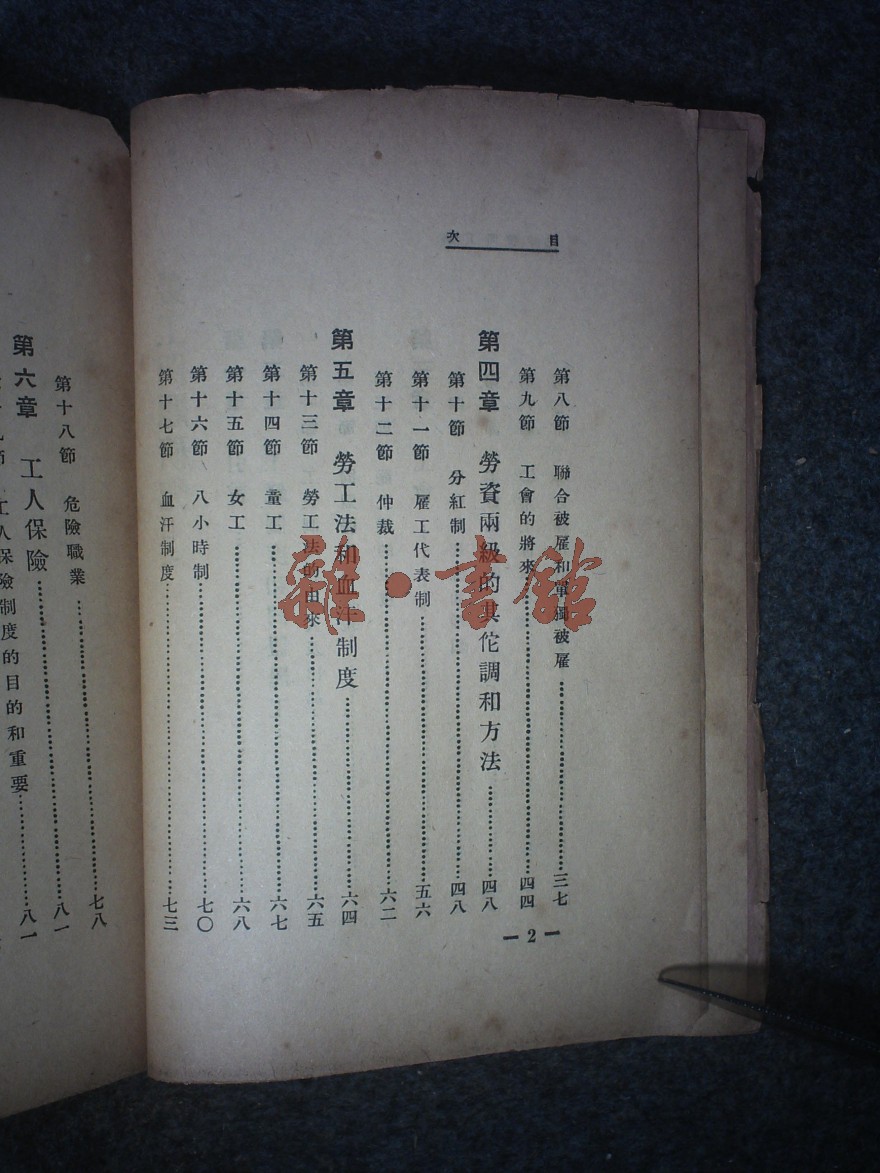 目次
第八節 聯合被雇和單獨被雇……三七
第九節 工會的將來……四四
第四章 勞資兩級的其佗調和方法……四八
第十節 分紅制……四八
第十一節 雇工代表制……五六
第十二節 仲裁……六二
第五章 勞工法和血汗制度……六四
第十三節 勞工法的由來……六五
第十四節 童工……六七
第十五節 女工……六八
第十六節 八小時制……七〇
第十七節 血汗制度……七三
— 2 —
第十八節 危險職業……七八
第六章 工人保險……八一
第十九節 工人保險制度的目的和重要……八一
雜·書館